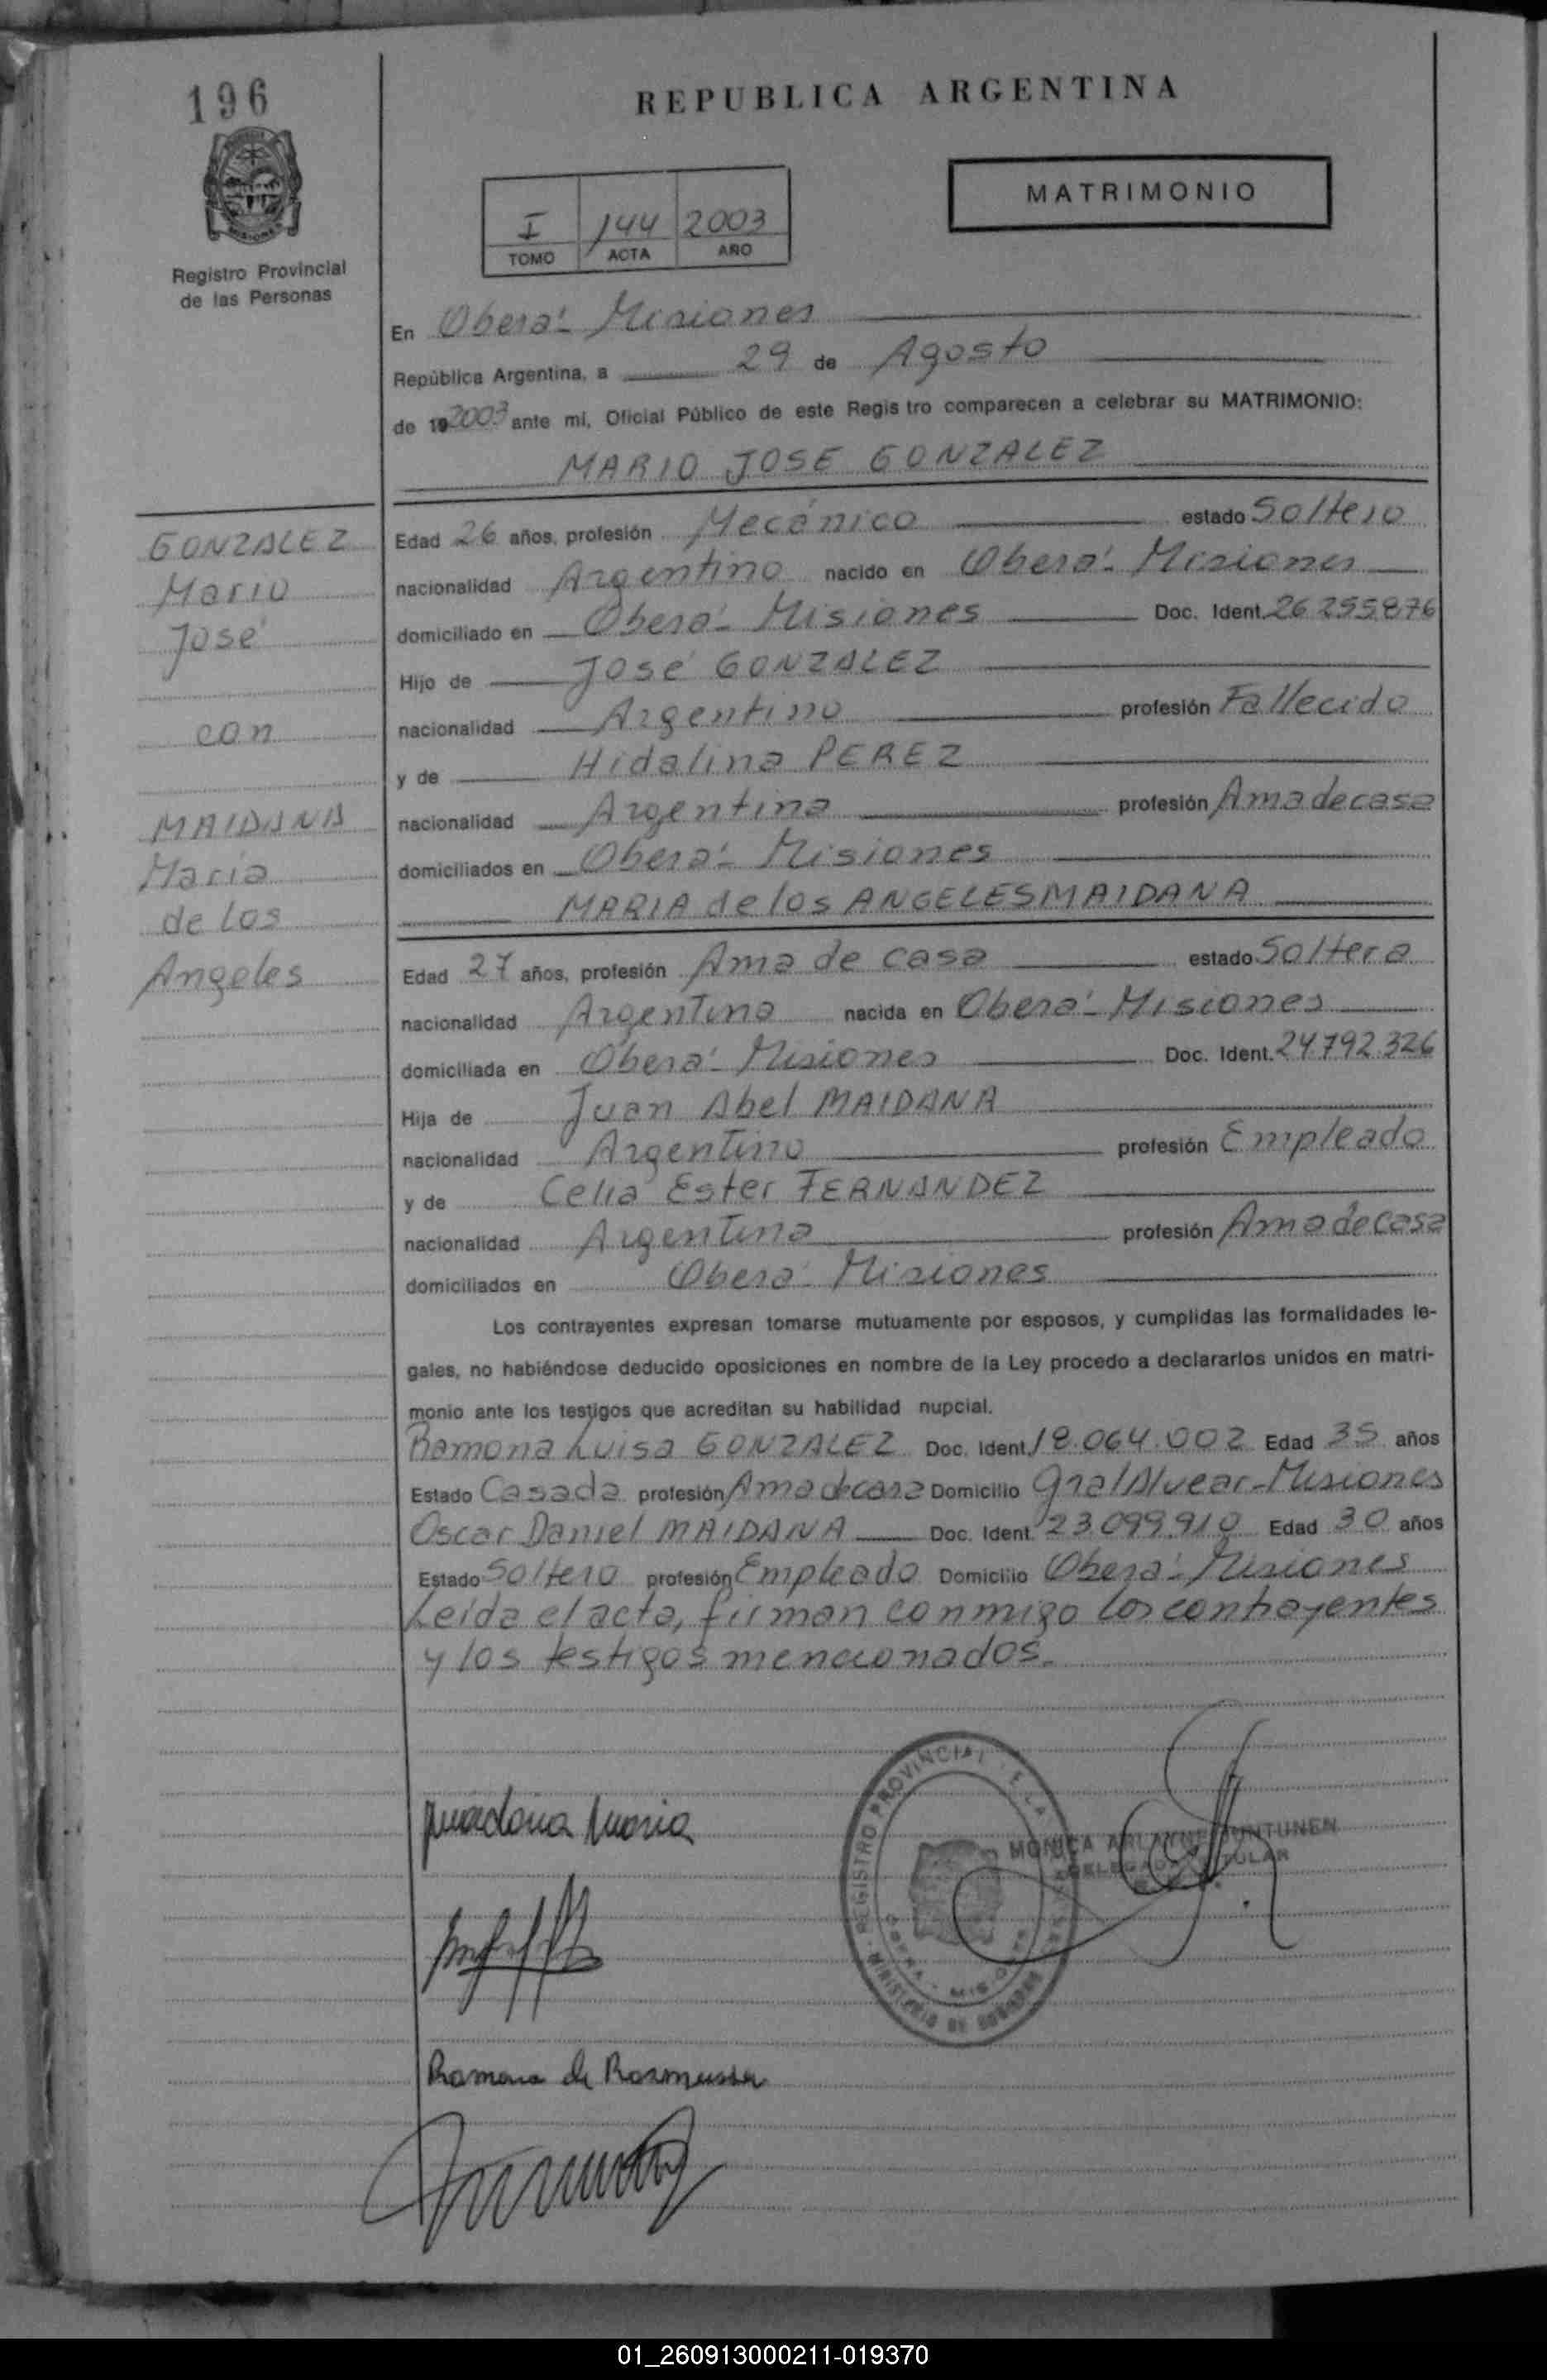 196
REPUBLICA ARGENTINA
MATRIMONIO
I 144 2003
TOMO ACTA AÑO
Registro Provincial
de las Personas
En Oberá - Misiones
República Argentina, a 29 de Agosto
de 19 2003 ante mi, Oficial Público de este Regis tro comparecen a celebrar su MATRIMONIO:
MARIO JOSE GONZALEZ
GONZALEZ
Mario
José
con
MAIDANA
María
de los
Angeles
Edad 26 años, profesión Mecánico estado Soltero
nacionalidad Argentino nacido en Oberá - Misiones
domiciliado en Oberá - Misiones Doc. Ident. 26.255.876
Hijo de José GONZALEZ
nacionalidad Argentino profesión Fallecido
y de Hidalina PEREZ
nacionalidad Argentina profesión Ama de casa
domiciliados en Oberá - Misiones
MARIA de los ANGELES MAIDANA
Edad 27 años, profesión Ama de casa estado Soltera
nacionalidad Argentina nacida en Oberá - Misiones
domiciliada en Oberá - Misiones Doc. Ident. 24.792.326
Hija de Juan Abel MAIDANA
nacionalidad Argentino profesión Empleado
y de Celia Ester FERNANDEZ
nacionalidad Argentina profesión Ama de casa
domiciliados en Oberá - Misiones
Los contrayentes expresan tomarse mutuamente por esposos, y cumplidas las formalidades le-
gales, no habiéndose deducido oposiciones en nombre de la Ley procedo a declararlos unidos en matri-
monio ante los testigos que acreditan su habilidad nupcial.
Ramona Luisa GONZALEZ Doc. Ident. 18.064.002 Edad 35 años
Estado Casada profesión Ama de casa Domicilio Gral Alvear - Misiones
Oscar Daniel MAIDANA Doc. Ident. 23.099.910 Edad 30 años
Estado Soltero profesión Empleado Domicilio Oberá - Misiones
Leída el acta, firman conmigo los contrayentes
y los testigos mencionados.
Maidana Maria
REGISTRO PROVINCIAL DE LA
MINISTERIO DE GOBIERNO
MONICA
DELEGADA TITULAR
Ramona de Rasmussen
01_260913000211-019370